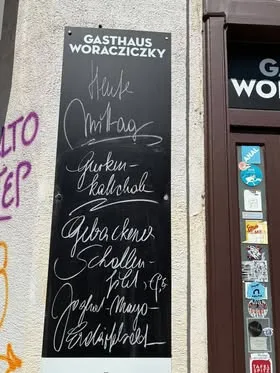 GASTHAUS
WORACZICZKY
Heute
Mittag
Gurken-
kaltschale
Gebackenes
Schollen-
filet
Joghurt-Mayo-
Erdäpfelsalat
G
WOR